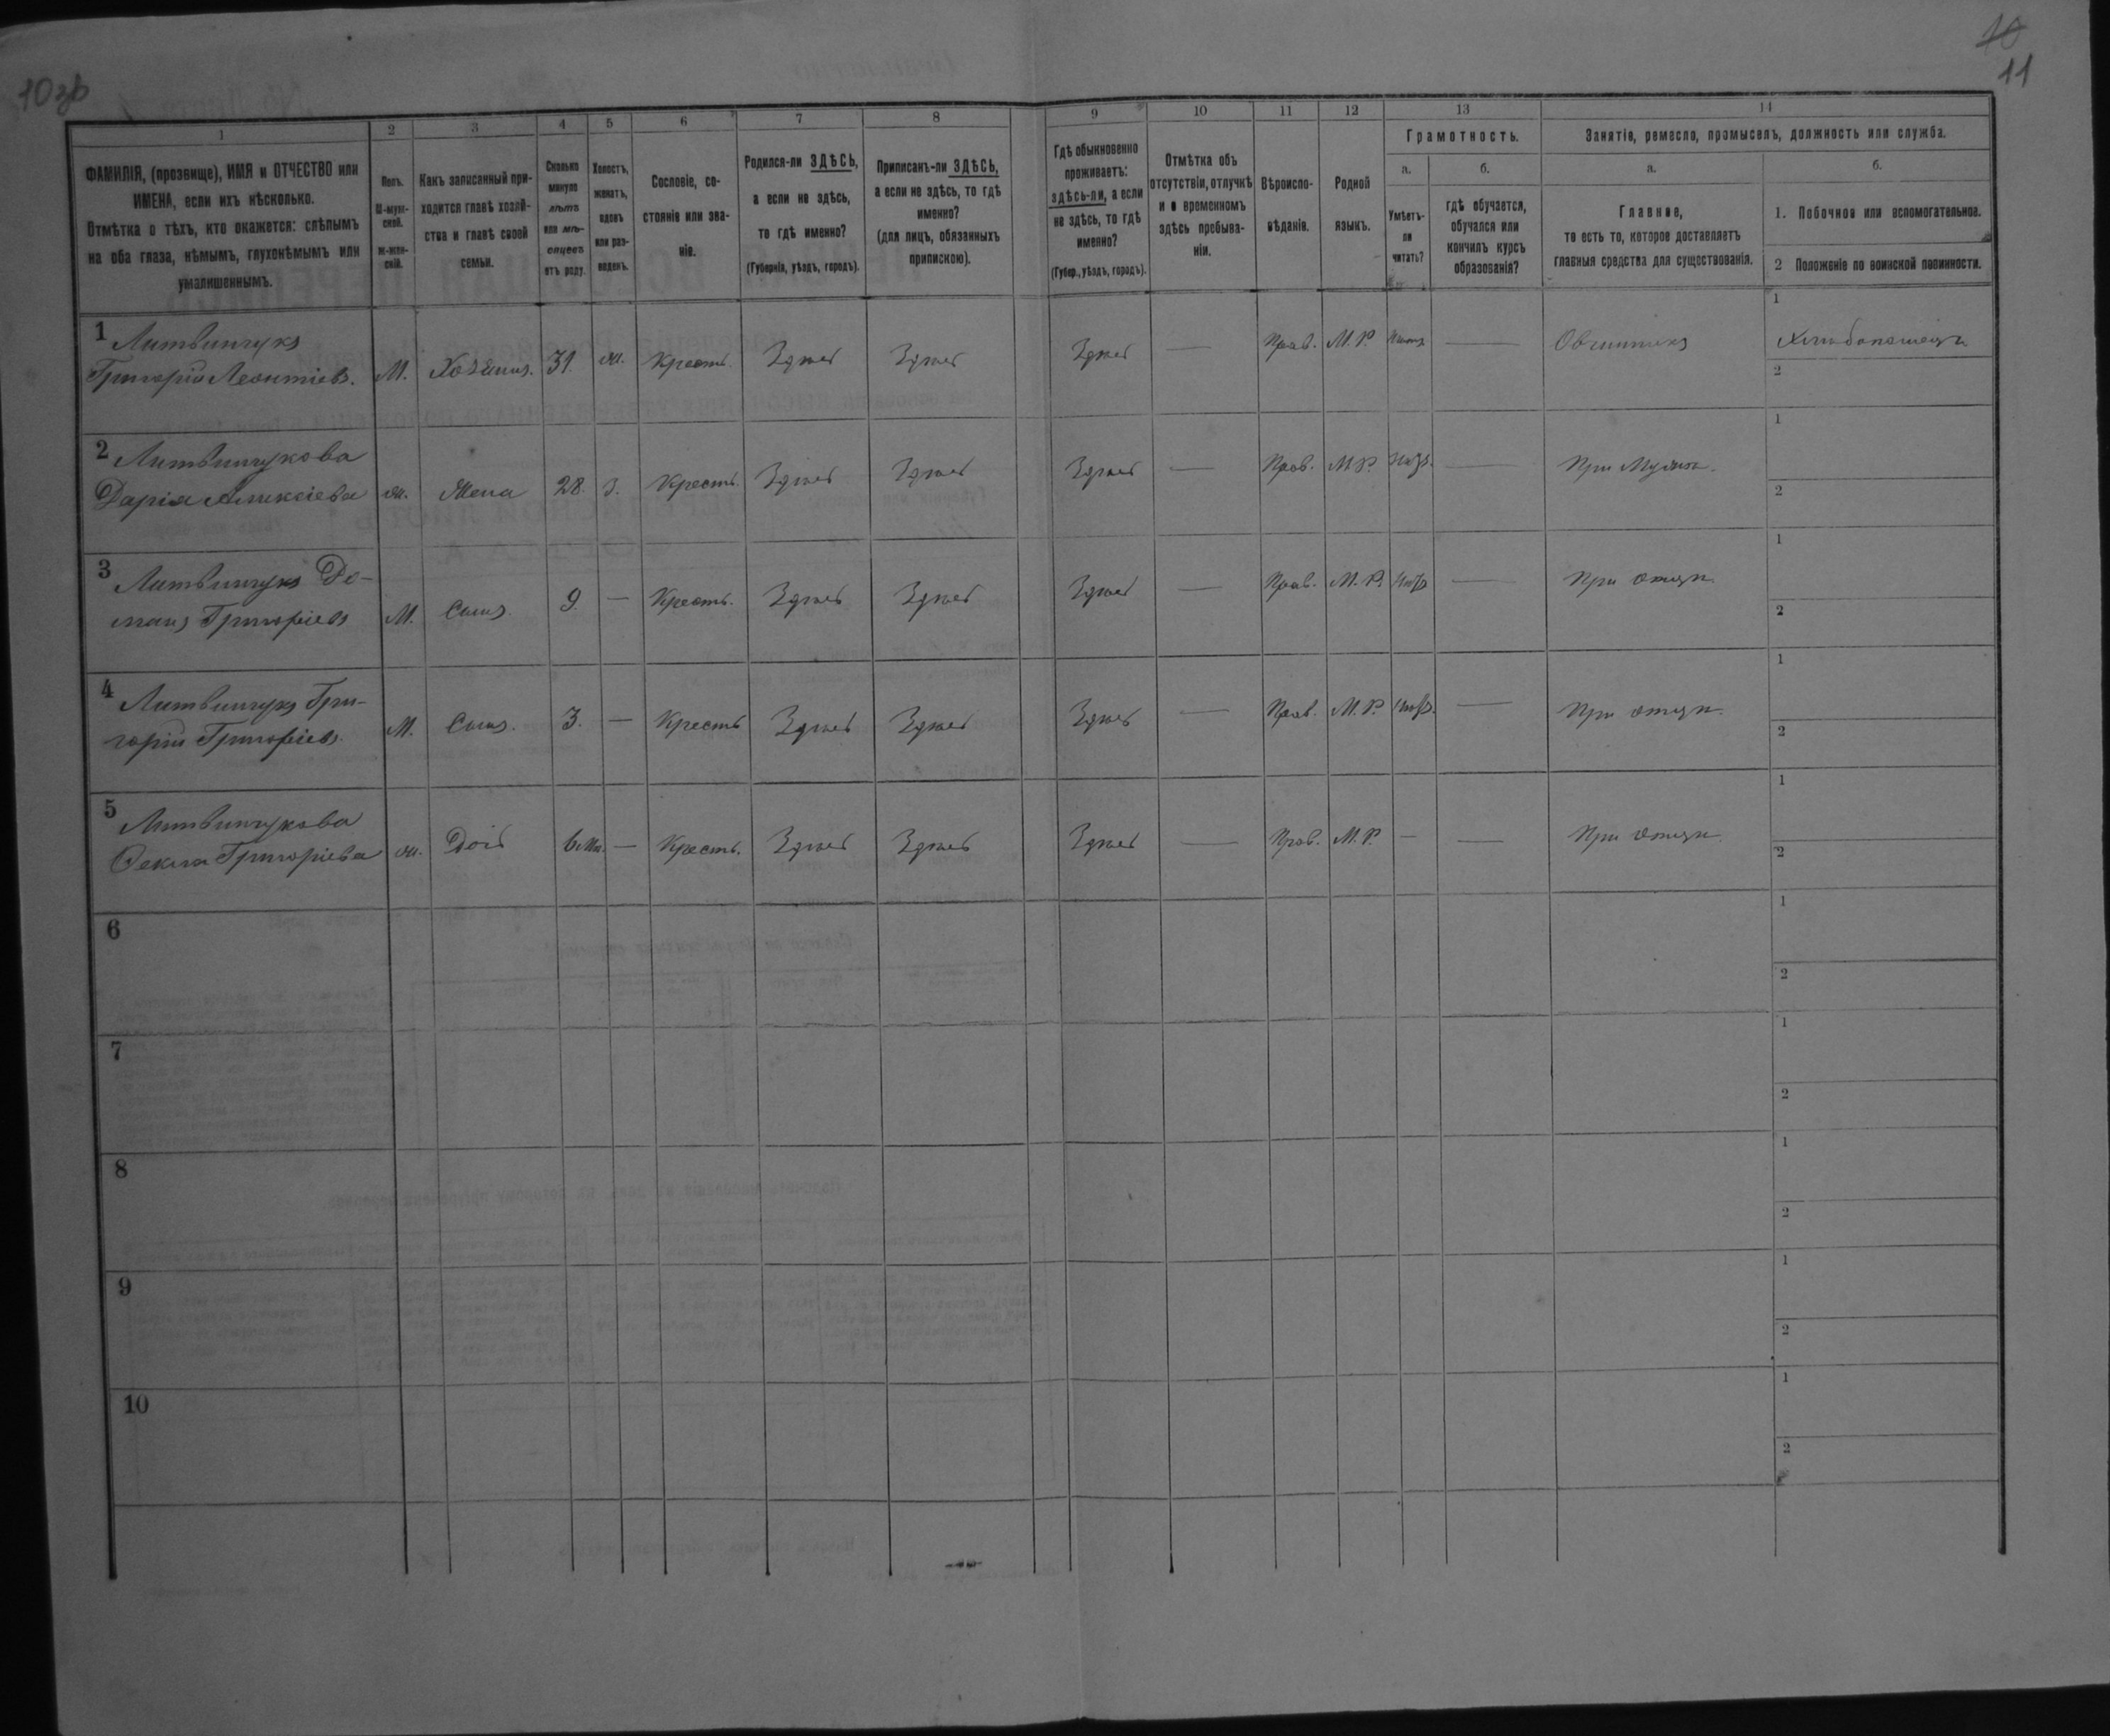 10зв
10
11
1 2 3 4 5 6 7 8 9 10 11 12 13 14
ФАМИЛІЯ, (прозвище), ИМЯ и ОТЧЕСТВО или
ИМЕНА, если ихъ нѣсколько.
Отмѣтка о тѣхъ, кто окажется: слѣпымъ
на оба глаза, нѣмымъ, глухонѣмымъ или
умалишеннымъ.
Полъ.
М-муж-
ской.
Ж-жен-
скій.
Какъ записанный при-
ходится главѣ хозяй-
ства и главѣ своей
семьи.
Сколько
минуло
лѣтъ
или мѣ-
сяцевъ
отъ роду.
Холостъ,
женатъ,
вдовъ
или раз-
веденъ.
Сословіе, со-
стояніе или зва-
ніе.
Родился-ли ЗДѢСЬ,
а если не здѣсь,
то гдѣ именно?
(Губернія, уѣздъ, городъ).
Приписанъ-ли ЗДѢСЬ,
а если не здѣсь, то гдѣ
именно?
(для лицъ, обязанныхъ
припискою).
Гдѣ обыкновенно
проживаетъ:
здѣсь-ли, а если
не здѣсь, то гдѣ
именно?
(Губер., уѣздъ, городъ).
Отмѣтка объ
отсутствіи, отлучкѣ
и о временномъ
здѣсь пребыва-
ніи.
Вѣроиспо-
вѣданіе.
Родной
языкъ.
Грамотность.
а.
Умѣетъ-
ли
читать?
б.
гдѣ обучается,
обучался или
кончилъ курсъ
образованія?
Занятіе, ремесло, промыселъ, должность или служба.
а.
Главное,
то есть то, которое доставляетъ
главныя средства для существованія.
б.
1. Побочное или вспомогательное.
2 Положеніе по воинской повинности.
1 Литвинчукъ
Григорій Леонтіевъ. М. Хозяинъ. 31. ж. Крестъ. Здѣсь Здѣсь Здѣсь — Прав. М. Р. — Овчинникъ 1 Хлѣбопашецъ
2
2 Литвинчукова
Дарія Алексіева ж. Жена 28. з. Крестъ. Здѣсь Здѣсь Здѣсь — Прав. М. Р. — При Мужѣ. 1
2
3 Литвинчукъ До-
манъ Григоріевъ М. Сынъ. 9. — Крестъ. Здѣсь Здѣсь Здѣсь — Прав. М. Р. — При отцѣ. 1
2
4 Литвинчукъ Гри-
горій Григоріевъ. М. Сынъ. 3. — Крестъ Здѣсь Здѣсь Здѣсь — Прав. М. Р. — При отцѣ. 1
2
5 Литвинчукова
Ѳекла Григоріева ж. Доčь 6 м. — Крестъ. Здѣсь Здѣсь Здѣсь — Прав. М. Р. — — При отцѣ. 1
2
6 1
2
7 1
2
8 1
2
9 1
2
10 1
2